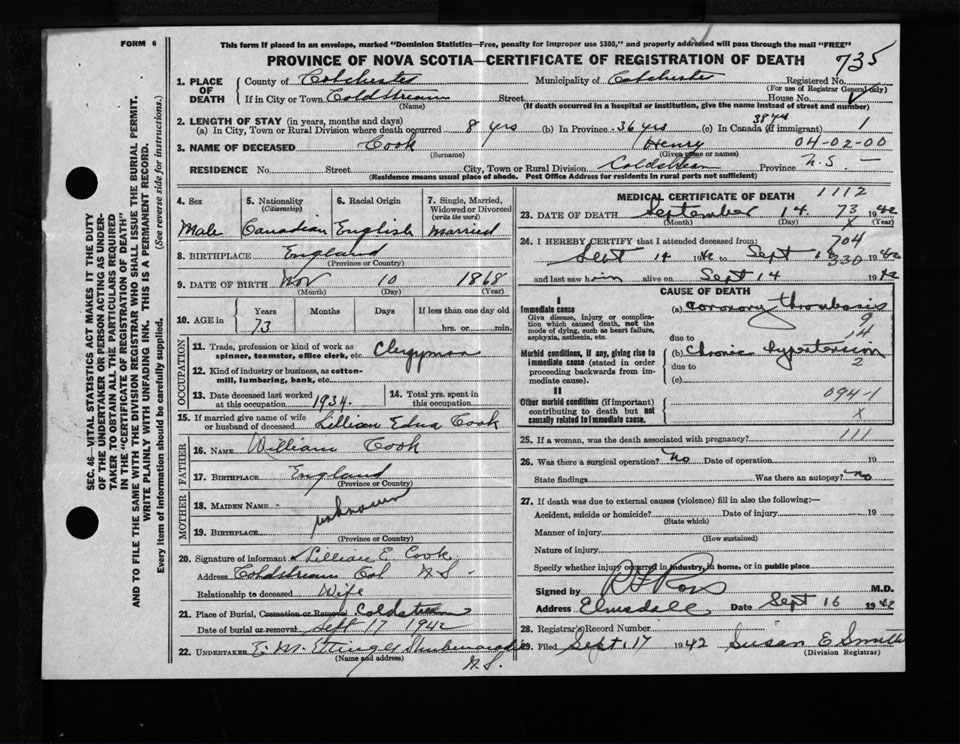 FORM 6
This form if placed in an envelope, marked "Dominion Statistics—Free, penalty for improper use $300," and properly addressed will pass through the mail "FREE"
PROVINCE OF NOVA SCOTIA—CERTIFICATE OF REGISTRATION OF DEATH 735
1. PLACE OF DEATH County of Colchester Municipality of Colchester Registered No.
(For use of Registrar General only)
If in City or Town Coldstream Street House No.
(Name) (If death occurred in a hospital or institution, give the name instead of street and number)
2. LENGTH OF STAY (in years, months and days)
(a) In City, Town or Rural Division where death occurred 8 yrs (b) In Province 36 yrs (c) In Canada (if immigrant) 38 yrs 1
3. NAME OF DECEASED Cook Henry 04-02-00
(Surname) (Given name or names)
RESIDENCE No. Street City, Town or Rural Division Coldstream Province N.S —
(Residence means usual place of abode. Post Office Address for residents in rural parts not sufficient)
4. Sex Male
5. Nationality (Citizenship) Canadian
6. Racial Origin English
7. Single, Married, Widowed or Divorced (write the word) Married
8. BIRTHPLACE England
(Province or Country)
9. DATE OF BIRTH Nov 10 1868
(Month) (Day) (Year)
10. AGE in Years 73 Months Days If less than one day old hrs. or min.
OCCUPATION
11. Trade, profession or kind of work as spinner, teamster, office clerk, etc. Clergyman
12. Kind of industry or business, as cotton-mill, lumbering, bank, etc.
13. Date deceased last worked at this occupation 1934.
14. Total yrs. spent in this occupation
15. If married give name of wife or husband of deceased Lillian Edna Cook
FATHER
16. NAME William Cook
17. BIRTHPLACE England
(Province or Country)
MOTHER
18. MAIDEN NAME -
unknown
19. BIRTHPLACE
(Province or Country)
20. Signature of informant Lillian E. Cook
Address Coldstream Col. N.S.
Relationship to deceased Wife
21. Place of Burial, Cremation or Removal Coldstream
Date of burial or removal Sept 17 1942
22. UNDERTAKER E. M. Ettinger
(Name and address)
N.S.
MEDICAL CERTIFICATE OF DEATH 1112
23. DATE OF DEATH September 14. 73 1942
(Month) (Day) X (Year)
24. I HEREBY CERTIFY that I attended deceased from: 704
Sept 14 1942 to Sept 1942
330
and last saw him alive on Sept 14 1942
CAUSE OF DEATH
I
Immediate cause
Give disease, injury or complication which caused death, not the mode of dying, such as heart failure, asphyxia, asthenia, etc.
(a) coronary thrombosis
9
14
due to
Morbid conditions, if any, giving rise to immediate cause (stated in order proceeding backwards from immediate cause).
(b) Chronic hypertension
2
due to
(c)
II
Other morbid conditions (if important) contributing to death but not causally related to immediate cause.
094-1
X
25. If a woman, was the death associated with pregnancy? 111
26. Was there a surgical operation? no Date of operation 19
State findings Was there an autopsy? no
27. If death was due to external causes (violence) fill in also the following:—
Accident, suicide or homicide? Date of injury 19
(State which)
Manner of injury
(How sustained)
Nature of injury
Specify whether injury occurred in industry, in home, or in public place
Signed by Ross M.D.
Address Elmsdale Date Sept 16 1942
28. Registrar's Record Number
29. Filed Sept. 17 1942 Susan E Smith
(Division Registrar)
SEC. 46—VITAL STATISTICS ACT MAKES IT THE DUTY
OF THE UNDERTAKER OR PERSON ACTING AS UNDER-
TAKER TO OBTAIN ALL THE PARTICULARS REQUIRED
IN THE "CERTIFICATE OF REGISTRATION OF DEATH"
AND TO FILE THE SAME WITH THE DIVISION REGISTRAR WHO SHALL ISSUE THE BURIAL PERMIT.
WRITE PLAINLY WITH UNFADING INK. THIS IS A PERMANENT RECORD.
Every item of information should be carefully supplied. (See reverse side for instructions.)